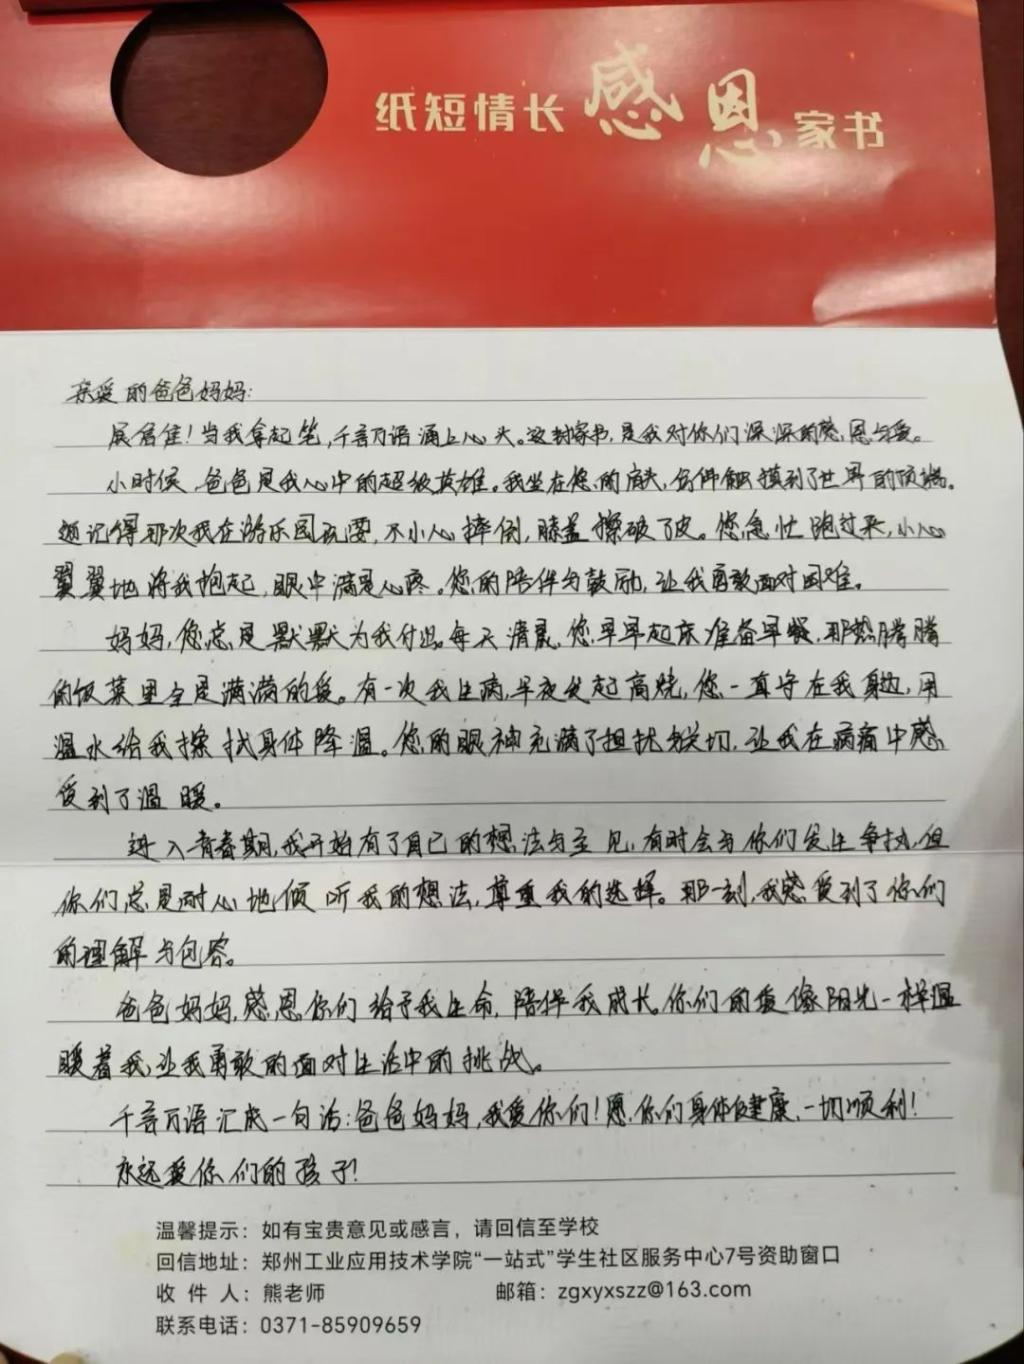 纸短情长 感恩 家书
亲爱的爸爸妈妈:
展信佳!当我拿起笔,千言万语涌上心头。这封家书,是我对你们深深的感恩与爱。
小时候,爸爸是我心中的超级英雄。我坐在您的肩头,仿佛触摸到了世界的顶端。
还记得那次我在游乐园玩耍,不小心摔倒,膝盖擦破了皮。您急忙跑过来,小心
翼翼地将我抱起,眼中满是心疼。您的陪伴与鼓励,让我勇敢面对困难。
妈妈,您总是默默为我付出。每天清晨,您早早起床准备早餐,那热腾腾
的饭菜里全是满满的爱。有一次我生病,半夜发起高烧,您一直守在我身边,用
温水给我擦拭身体降温。您的眼神充满了担忧与关切,让我在病痛中感
受到了温暖。
进入青春期,我开始有了自己的想法与主见,有时会与你们发生争执,但
你们总是耐心地倾听我的想法,尊重我的选择。那一刻,我感受到了你们
的理解与包容。
爸爸妈妈,感恩你们给予我生命,陪伴我成长。你们的爱像阳光一样温
暖着我,让我勇敢的面对生活中的挑战。
千言万语汇成一句话:爸爸妈妈,我爱你们!愿你们身体健康,一切顺利!
永远爱你们的孩子!
温馨提示:如有宝贵意见或感言,请回信至学校
回信地址:郑州工业应用技术学院“一站式”学生社区服务中心7号资助窗口
收 件 人:熊老师 邮箱:zgxyxszz@163.com
联系电话:0371-85909659